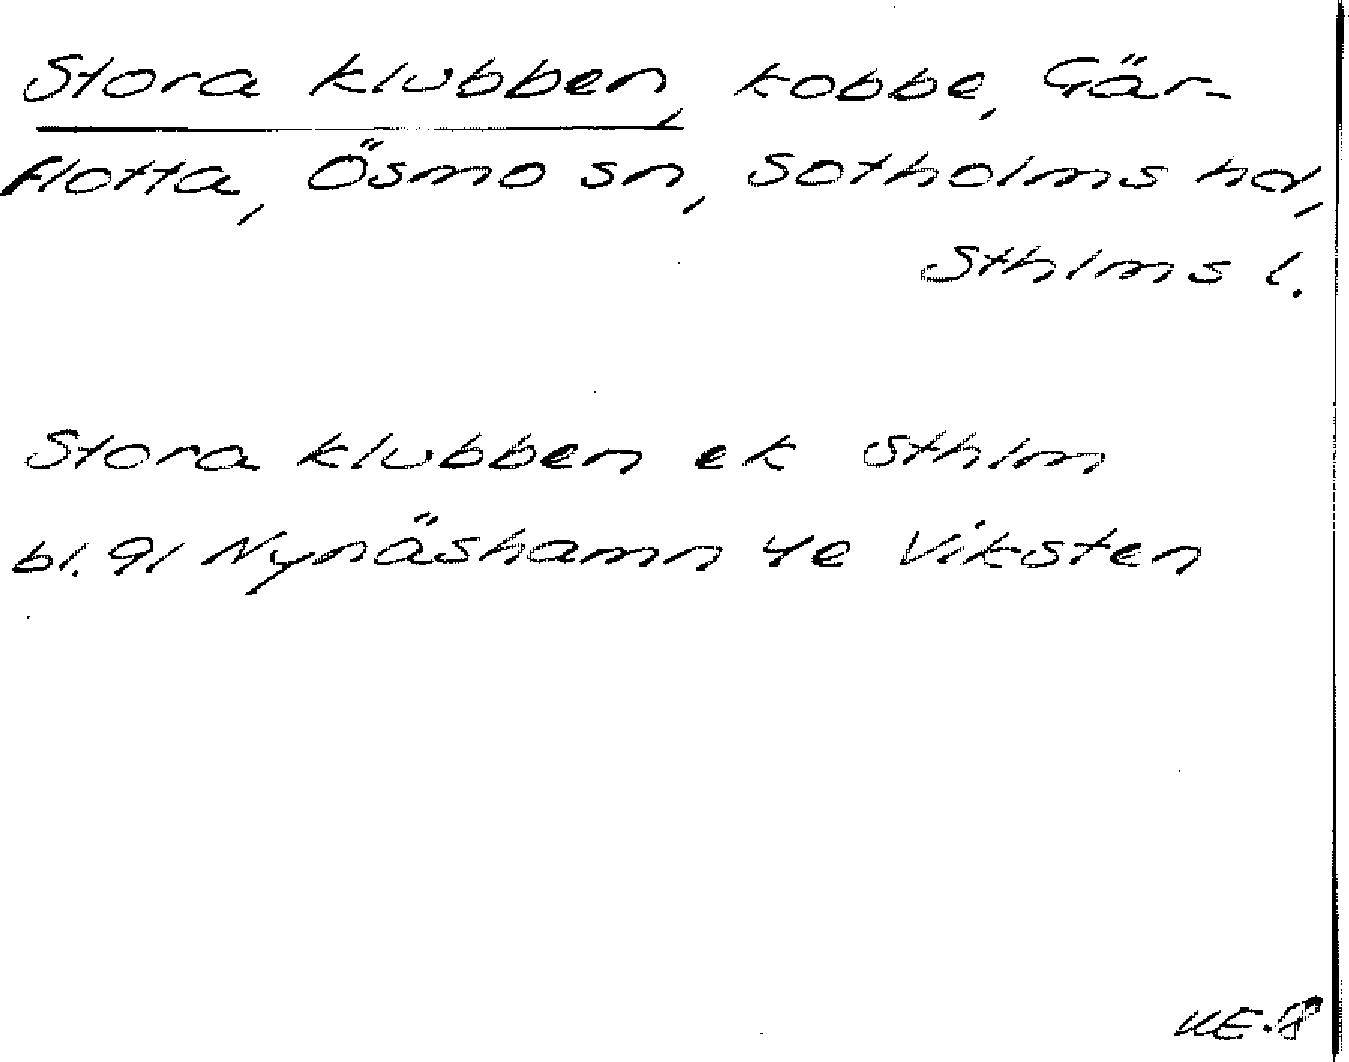 Stora klubben, kobbe, Gär-
flotta, Ösmo sn, Sotholms hd,
Sthlms l.
Stora klubben ek Sthlm
bl. 91 Nynäshamn 4e Viksten